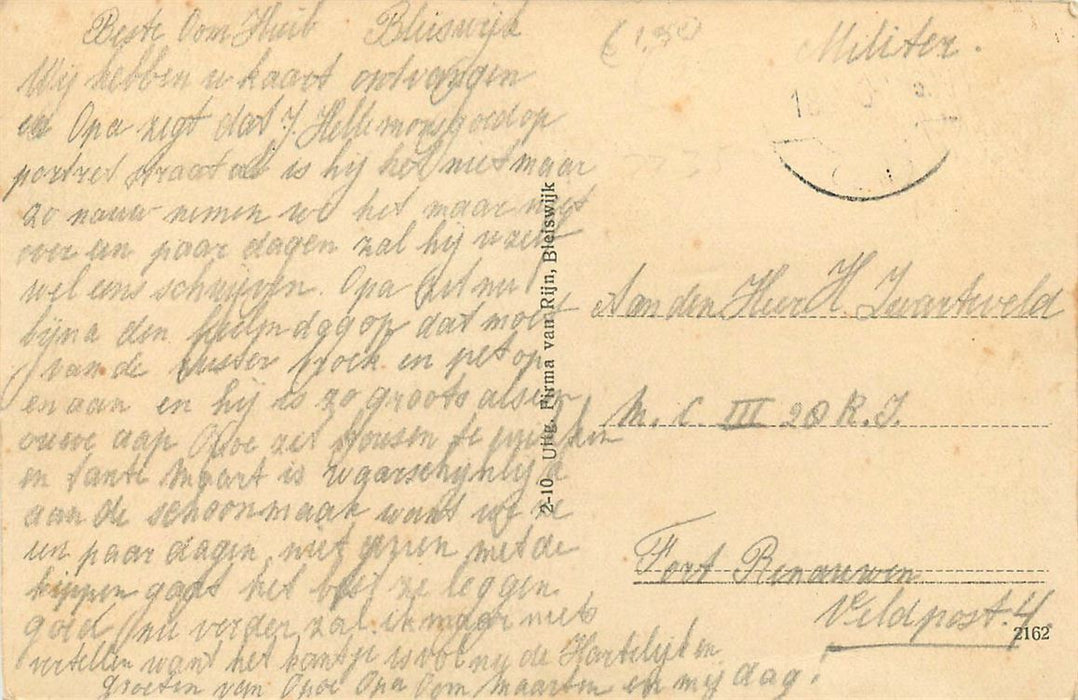 Beste Oom Huib Bleiswijk
Wij hebben u kaart ontvangen
en Opa zegt dat J. Hellemons goed op
portret straat al is hij het niet maar
zo nauw nemen we het maar niet
over een paar dagen zal hij u zelf
wel eens schrijven. Opa zit nu
bijna den heelen dag op dat moet
van de broek en pet op
en aan en hij is zo groots als een
ouwe aap Opoe zit kousen te
en tante Maart is waarschijnlijk
aan de schoonmaak want we ze
een paar dagen niet gezien met de
kippen gaat het best ze leggen
goed nu verder zal ik maar niets
vertellen want het kantje is vol nu de Hartelijken
groeten van Opoe Opa Oom Maarten en mij dag!
2-10 Uitg. Firma van Rijn, Bleiswijk
Militer.
Aan den Heer H Zwartveld
M. C III 28 R. I.
Fort Renauwen
Veldpost. 4.
2162